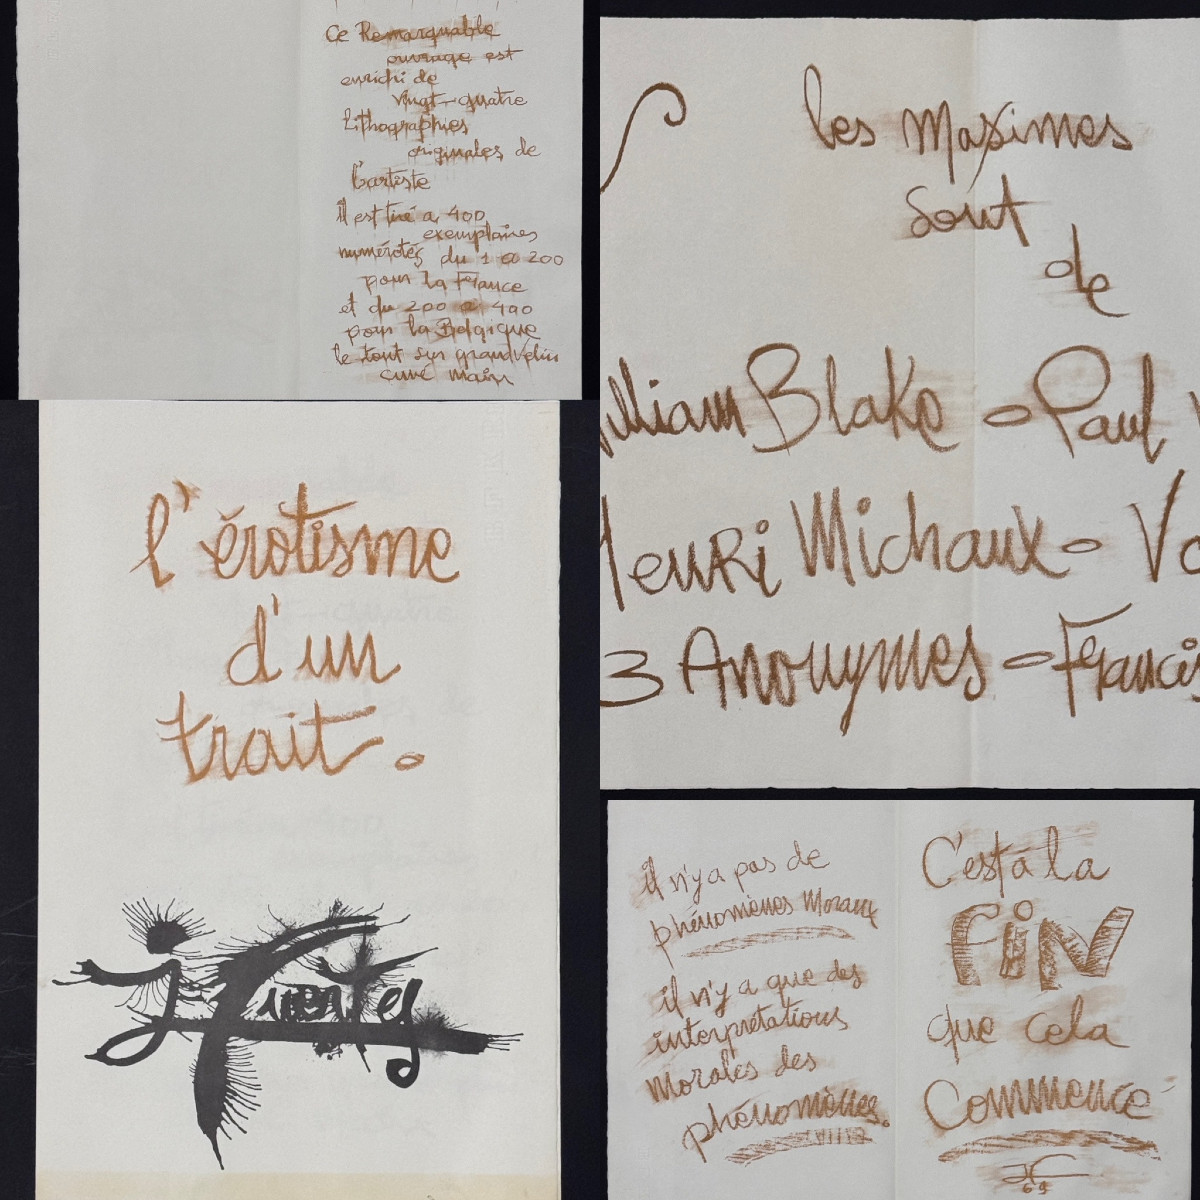 Ce Remarquable
ouvrage est
enrichi de
vingt-quatre
Lithographies
originales de
l'artiste
il est tiré a 400
exemplaires
numérotés du 1 a 200
pour la France
et du 200 a 400
pour la Belgique
le tout sur grand vélin
cuvé main
les Maximes
sont
de
William Blake - Paul
Henri Michaux -
3 Anonymes - Francis
l'érotisme
d'un
trait.
J. Fuentes
il n'y a pas de
phénomènes Moraux
il n'y a que des
interprétations
Morales des
phénomènes.
C'est a la
FiN
que cela
Commence
69